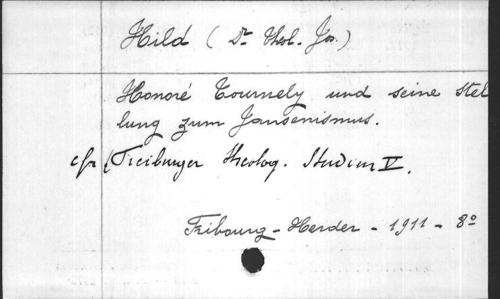 Hild (Dr theol. Jos.)
Honoré Tournely und seine Stel
lung zum Jansenismus.
cfr (Freiburger theolog. Studien V.
Fribourg - Herder - 1911 - 8º